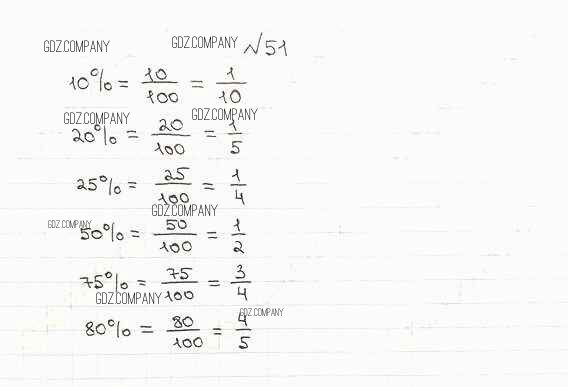 GDZ.COMPANY GDZ.COMPANY √51
10% = 10/100 = 1/10
GDZ.COMPANY GDZ.COMPANY
20% = 20/100 = 1/5
25% = 25/100 = 1/4
GDZ.COMPANY
GDZ.COMPANY
50% = 50/100 = 1/2
75% = 75/100 = 3/4
GDZ.COMPANY
GDZ.COMPANY
80% = 80/100 = 4/5